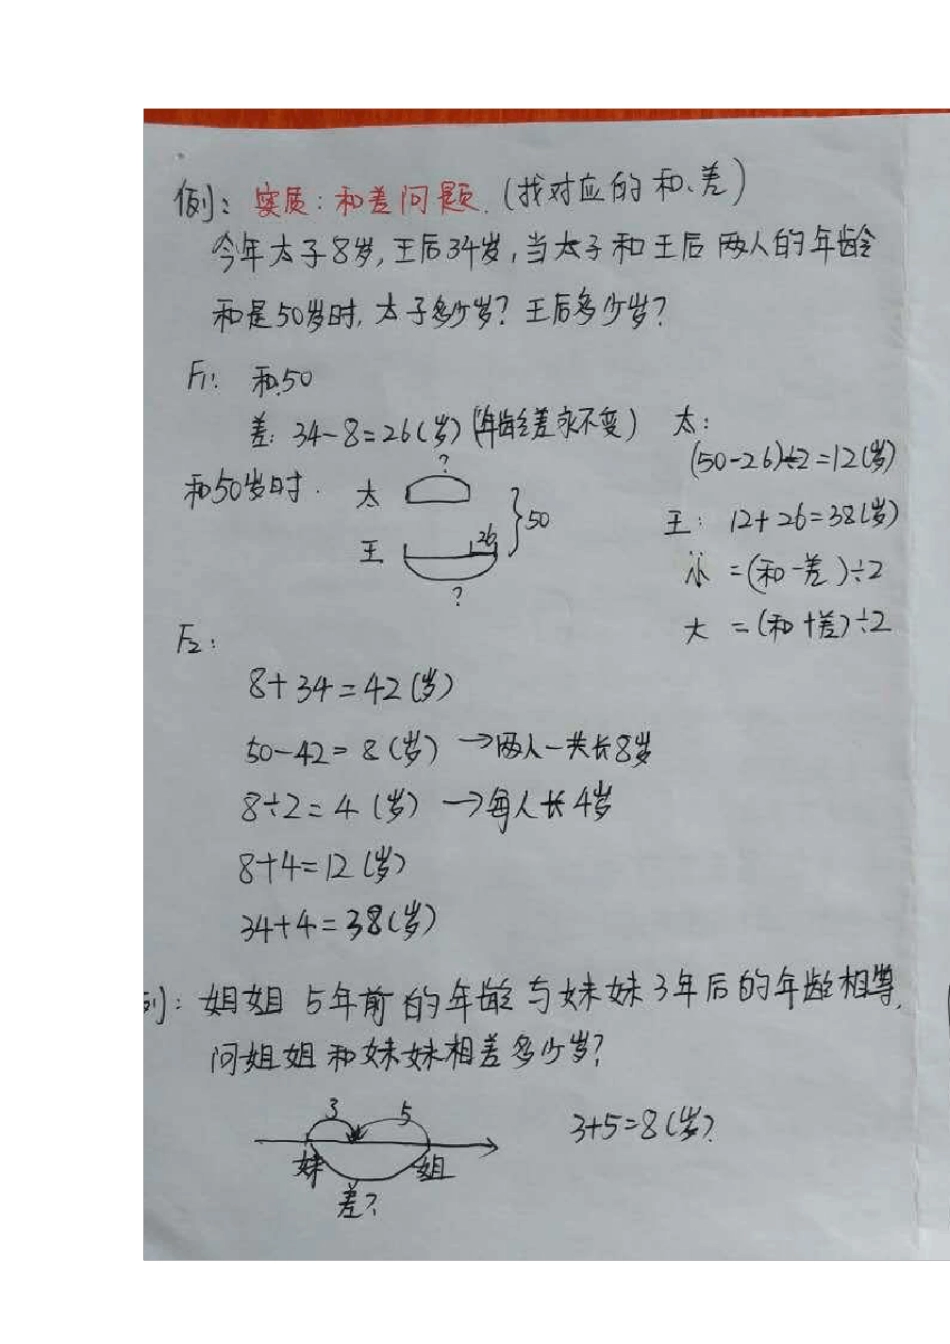 例：实质：和差问题.（找对应的和、差）
今年太子8岁,王后34岁,当太子和王后两人的年龄
和是50岁时,太子多少岁?王后多少岁?
F1: 和:50
差:34-8=26(岁)(年龄差永不变)
太:
(50-26)÷2=12(岁)
王: 12+26=38(岁)
小 =(和-差)÷2
大 =(和+差)÷2
和50岁时.
?
太
王
26
50
?
F2:
8+34=42(岁)
50-42=8(岁)→两人一共长8岁
8÷2=4(岁)→每人长4岁
8+4=12(岁)
34+4=38(岁)
例: 姐姐5年前的年龄与妹妹3年后的年龄相等,
问姐姐和妹妹相差多少岁?
3 5
妹 姐
差?
3+5=8(岁)